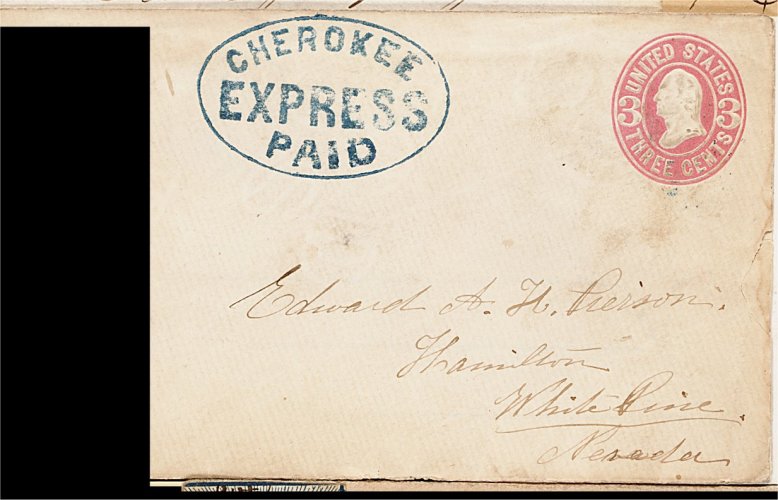 CHEROKEE
EXPRESS
PAID
UNITED STATES
3 3
THREE CENTS
Edward A. H. Pierson.
Hamilton
White Pine.
Nevada